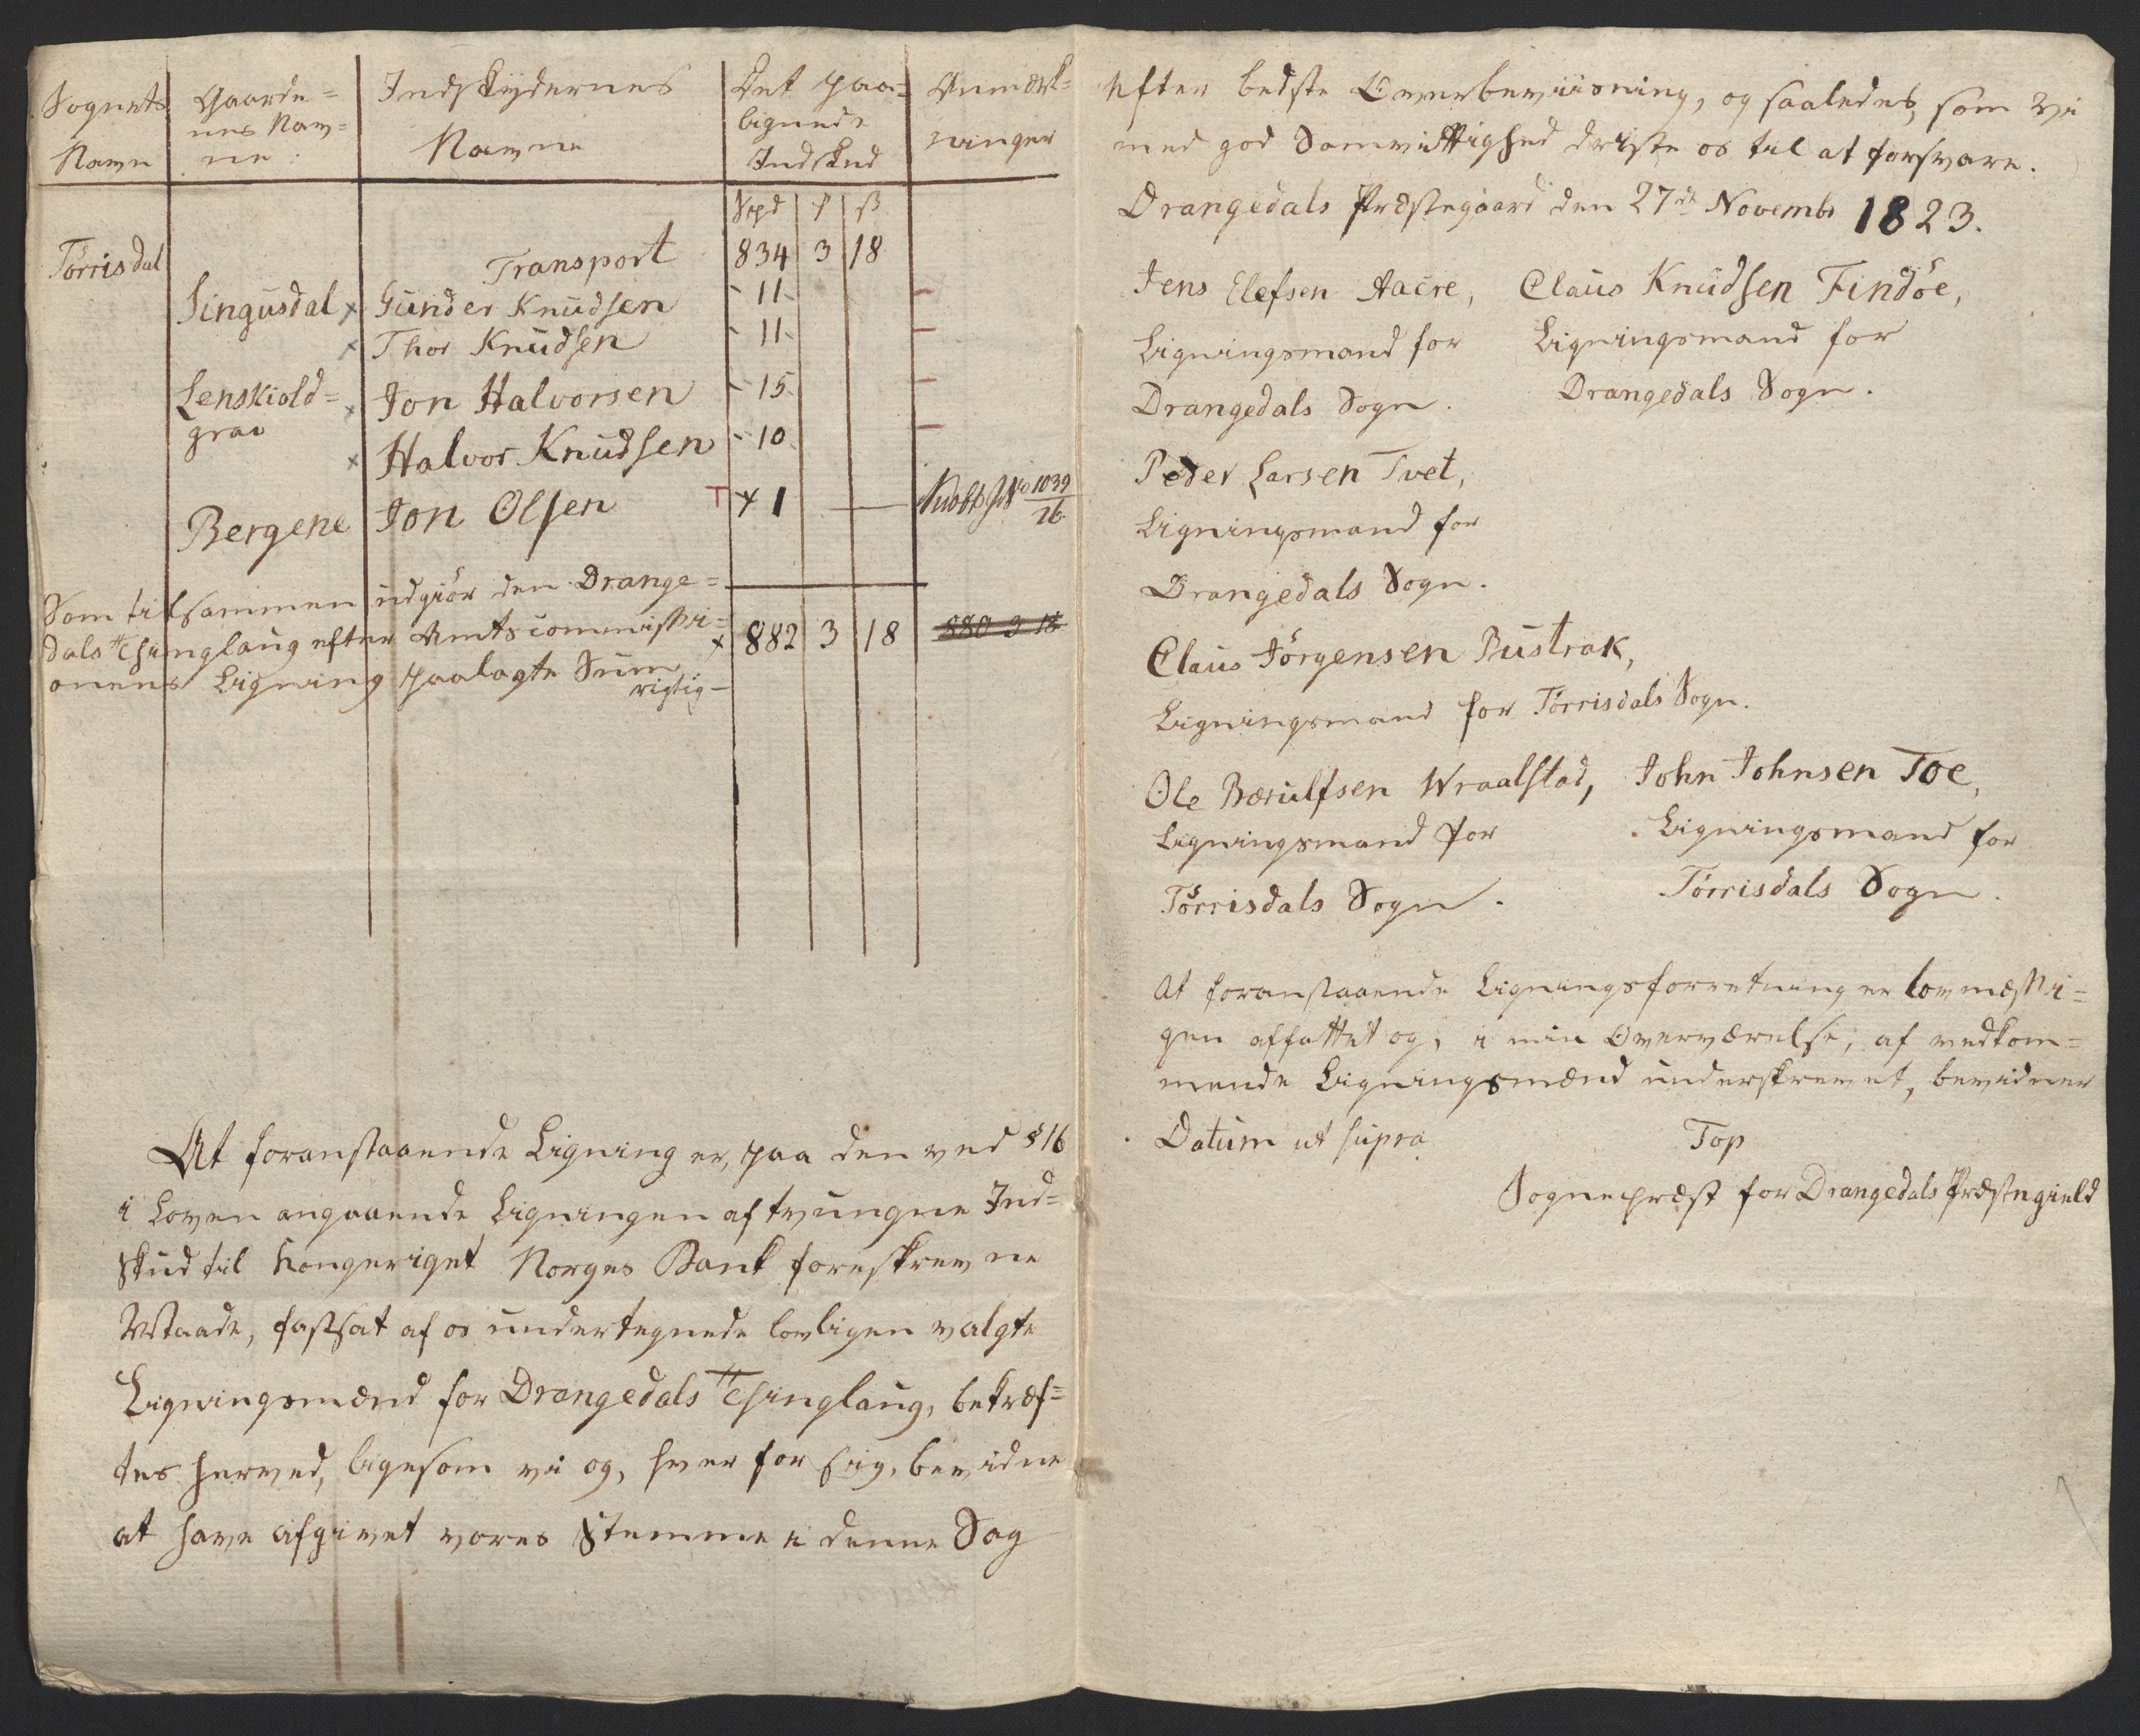 Sognets Navn | Gaarde= nes Nav= ne: | Indskydernes Navne | Det paa= lignede Indskud | Anmærk= ninger
Spd | ß
Tørrisdal | Transport | 834 | 3 | 18
Singusdal | Gunder Knudsen | 11
Thor Knudsen | 11
Lenskiold= grav | Jon Halvorsen | 15
Halvor Knudsen | 10
Bergene | Jon Olsen | T x 1 | — | No 1039/26
Som tilsammen udgiør den Drange=
dals Thinglaug efter Amtscommissi= x 882 | 3 | 18 | 880 3 18
onens Ligning paalagte Sum
rigtig —
At foranstaaende Ligning er, paa den ved § 16
i Loven angaaende Ligningen af tvungne Ind=
skud til Kongeriget Norges Bank foreskrevne
Maade, fastsat af os undertegnede lovligen valgte
Ligningsmænd for Drangedals Thinglaug, bekræf=
tes herved, ligesom vi og, hver for sig, bevidne
at have afgivet vores Stemme i denne Sag
efter bedste Overbeviisning, og saaledes, som vi
med god Samvittighed driste os til at forsvare.
Drangedals Præstegaard den 27de Novembr 1823.
Jens Elefsen Aacre, Claus Knudsen Findøe,
Ligningsmand for Ligningsmand for
Drangedals Sogn. Drangedals Sogn.
Peder Larsen Tvet,
Ligningsmand for
Drangedals Sogn.
Claus Jørgensen Bustrak,
Ligningsmand for Tørrisdals Sogn.
Ole Bærulfsen Wraalstad, John Johnsen Toe,
Ligningsmand for Ligningsmand for
Tørrisdals Sogn. Tørrisdals Sogn.
At foranstaaende Ligningsforretning er lovmæssi=
gen affattet og, i min Overværelse, af vedkom=
mende Ligningsmænd underskrevet, bevidner
Datum ut supra Top
Sognepræst for Drangedals Præstegield